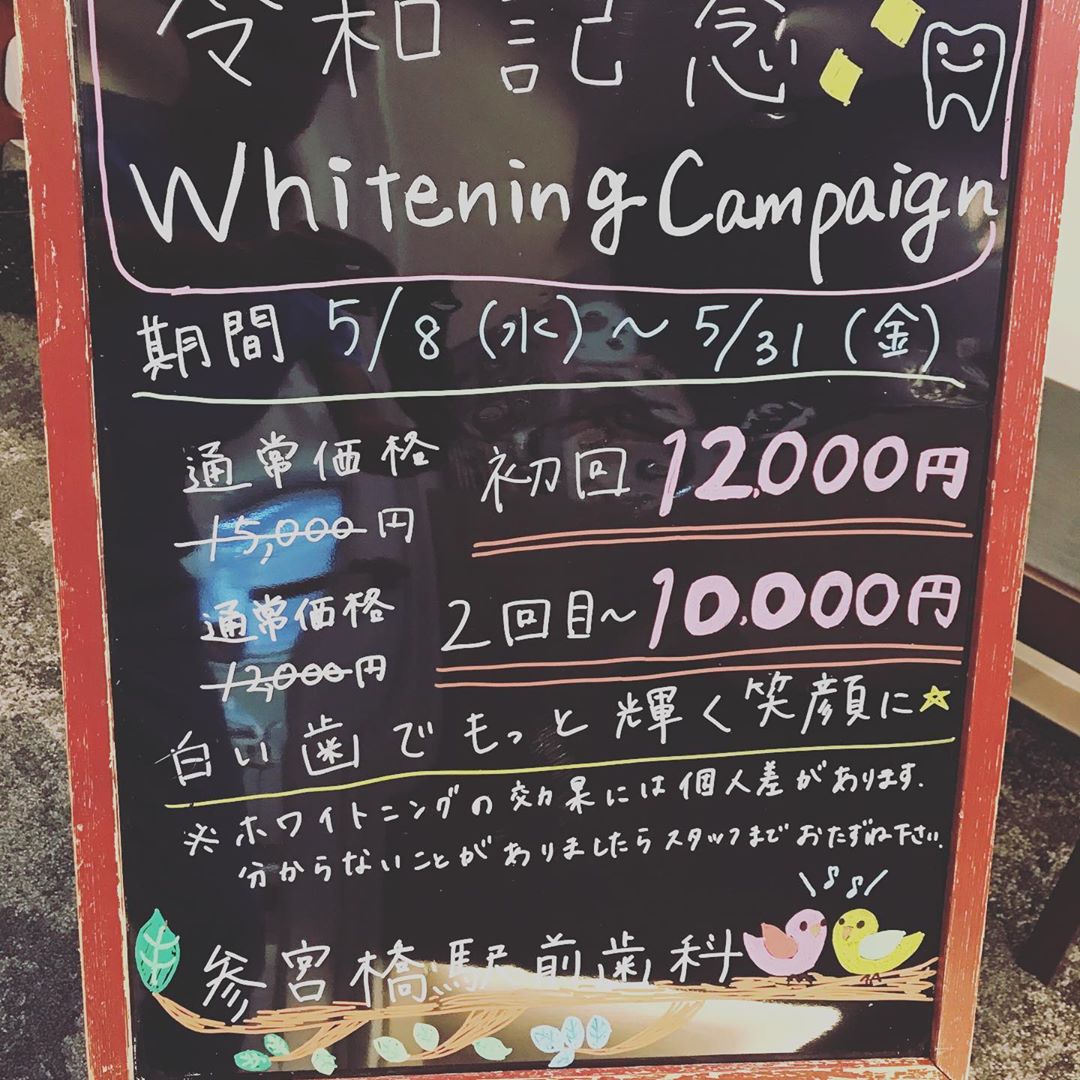 令和記念
Whitening Campaign
期間 5/8(水)~5/31(金)
通常価格
15,000円
初回 12.000円
通常価格
13,000円
2回目~10.000円
白い歯でもっと輝く笑顔に☆
※ホワイトニングの効果には個人差があります.
分からないことがありましたらスタッフまでおたずね下さい.
参宮橋駅前歯科